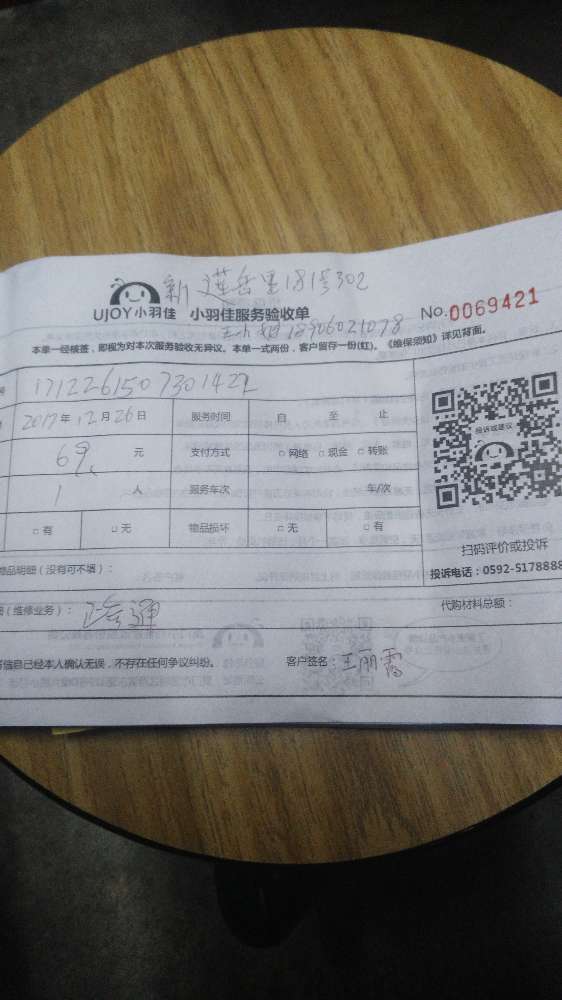 新 莲岳里18号302
UJOY小羽佳 小羽佳服务验收单 No.0069421
18906021078
本单一经核签，即视为对本次服务验收无异议。本单一式两份，客户留存一份(红)。《维保须知》详见背面。
号 1712261507301422
2017年12月26日 服务时间 自 至 止
元 支付方式 □网络 □现金 □转账
投诉或建议
1 人 服务车次 车/次
□有 □无 物品损坏 □无 □有
扫码评价或投诉
物品明细（没有可不填）： 投诉电话：0592-5178888
（维修业务）： 代购材料总额：
信息已经本人确认无误，不存在任何争议纠纷。 客户签名：王丽霞